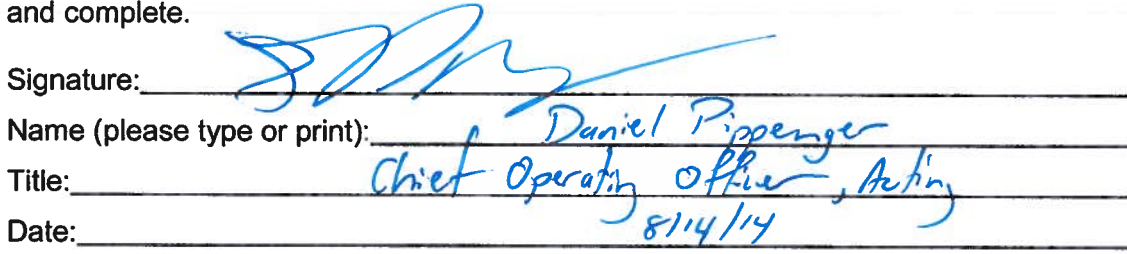 and complete.
Signature:
Name (please type or print): Daniel Pippenger
Title: Chief Operating Officer, Acting
Date: 8/14/14